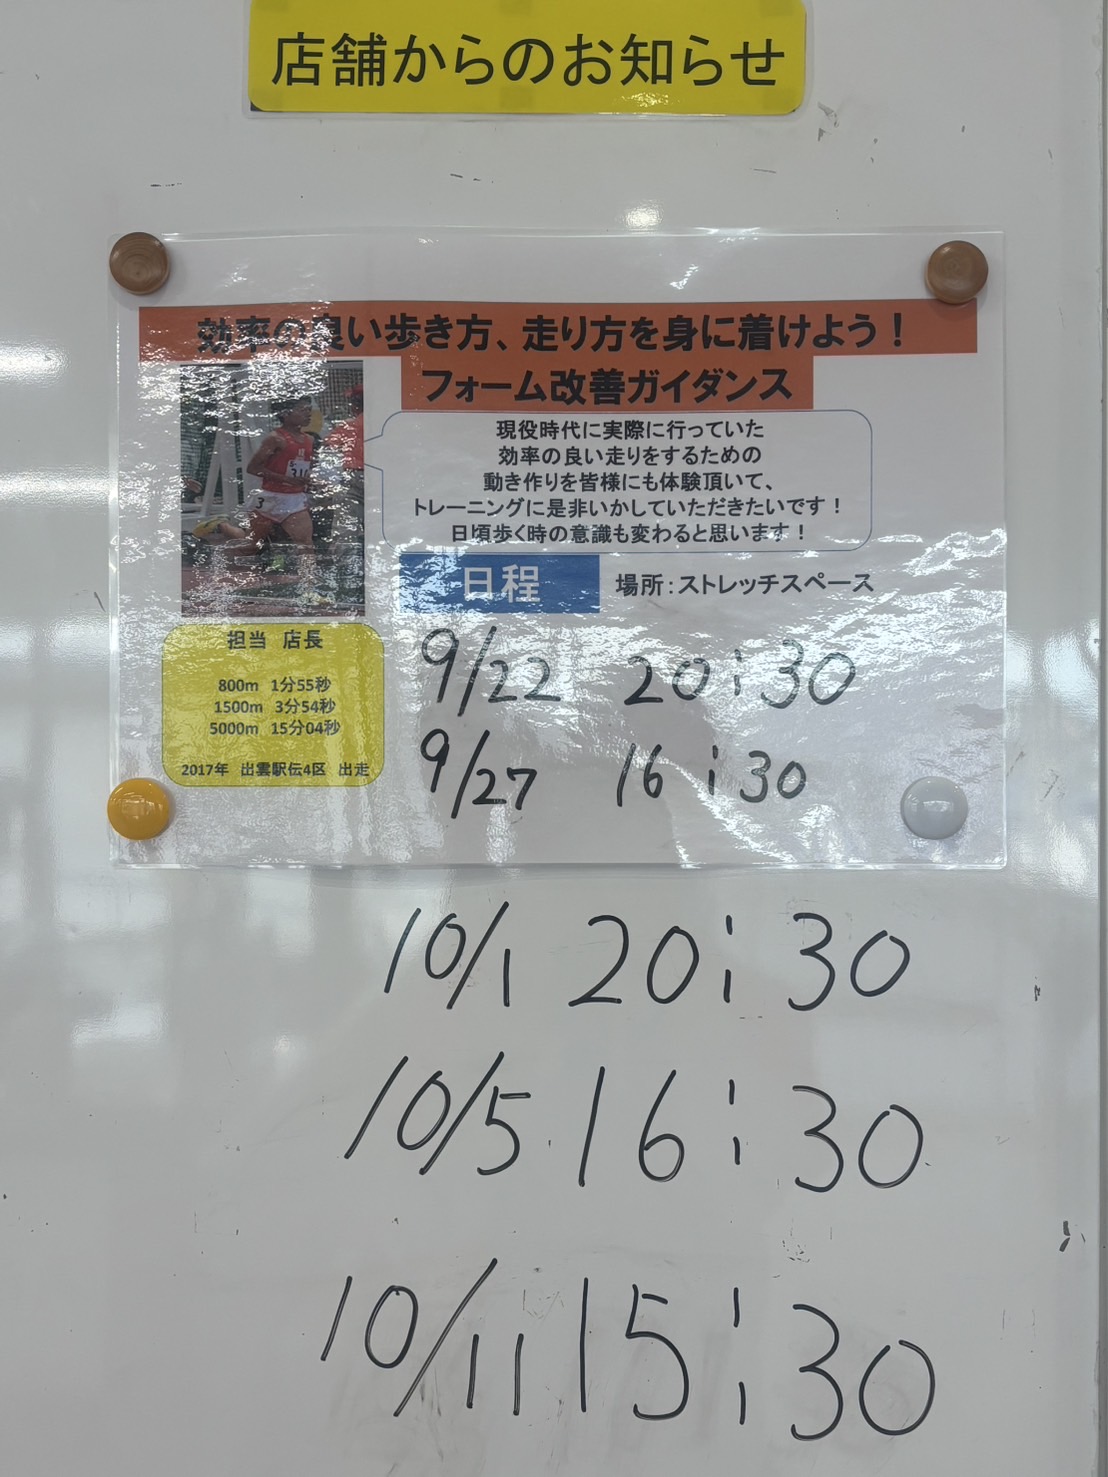 店舗からのお知らせ
効率の良い歩き方、走り方を身に着けよう！
フォーム改善ガイダンス
現役時代に実際に行っていた
効率の良い走りをするための
動き作りを皆様にも体験頂いて、
トレーニングに是非いかしていただきたいです！
日頃歩く時の意識も変わると思います！
日程
場所：ストレッチスペース
担当 店長
800m 1分55秒
1500m 3分54秒
5000m 15分04秒
2017年 出雲駅伝4区 出走
9/22 20:30
9/27 16:30
10/1 20:30
10/5 16:30
10/11 15:30